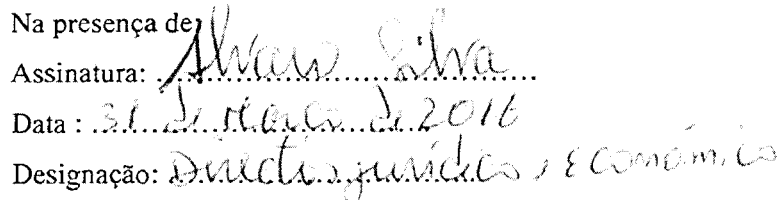 Na presença de:
Assinatura: Alvaro Silva
Data : 31 de Março de 2016
Designação: Director jurídico, Económico